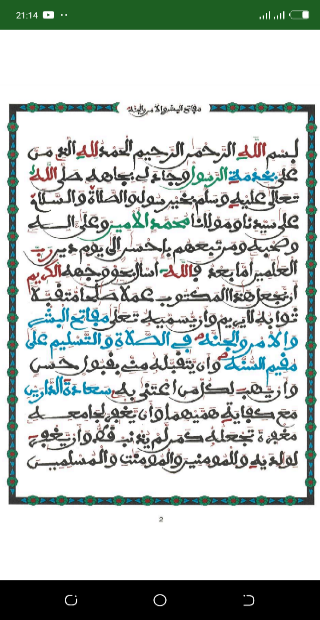 21:14
مفاتح البشر والامر والجنة
بسم الله الرحمن الرحيم الحمد لله الذي من
على بخدمة الرسول وجاد لي بجاهه صلى الله
تعالى عليه وسلم بخير سول والصلاة والسلام
على سيدنا ومولانا محمد الامين وعلى اله
وصحبه ومن تبعهم بإحسن الى يوم الدين رب
العلمين اما بعد فالله اسال بحق وجهه الكريم
ان يجعل هذا المكتوب عملا صلحا متقبلا
ثوابه لا يريم وان يسميه تعلى مفاتح البشر
والامر والجنة في الصلاة والتسليم على
مقيم السنة وان يتقبله منى بقبول حسن
وان يهب لكل من اعتنى به سعادة الدارين
مع كفاية همهما وان يغفر لجامعه
مغفرة تجعله كمن لم يذنب قط وان يغفر
لوالديه وللمومنين والمومنت والمسلمين
2